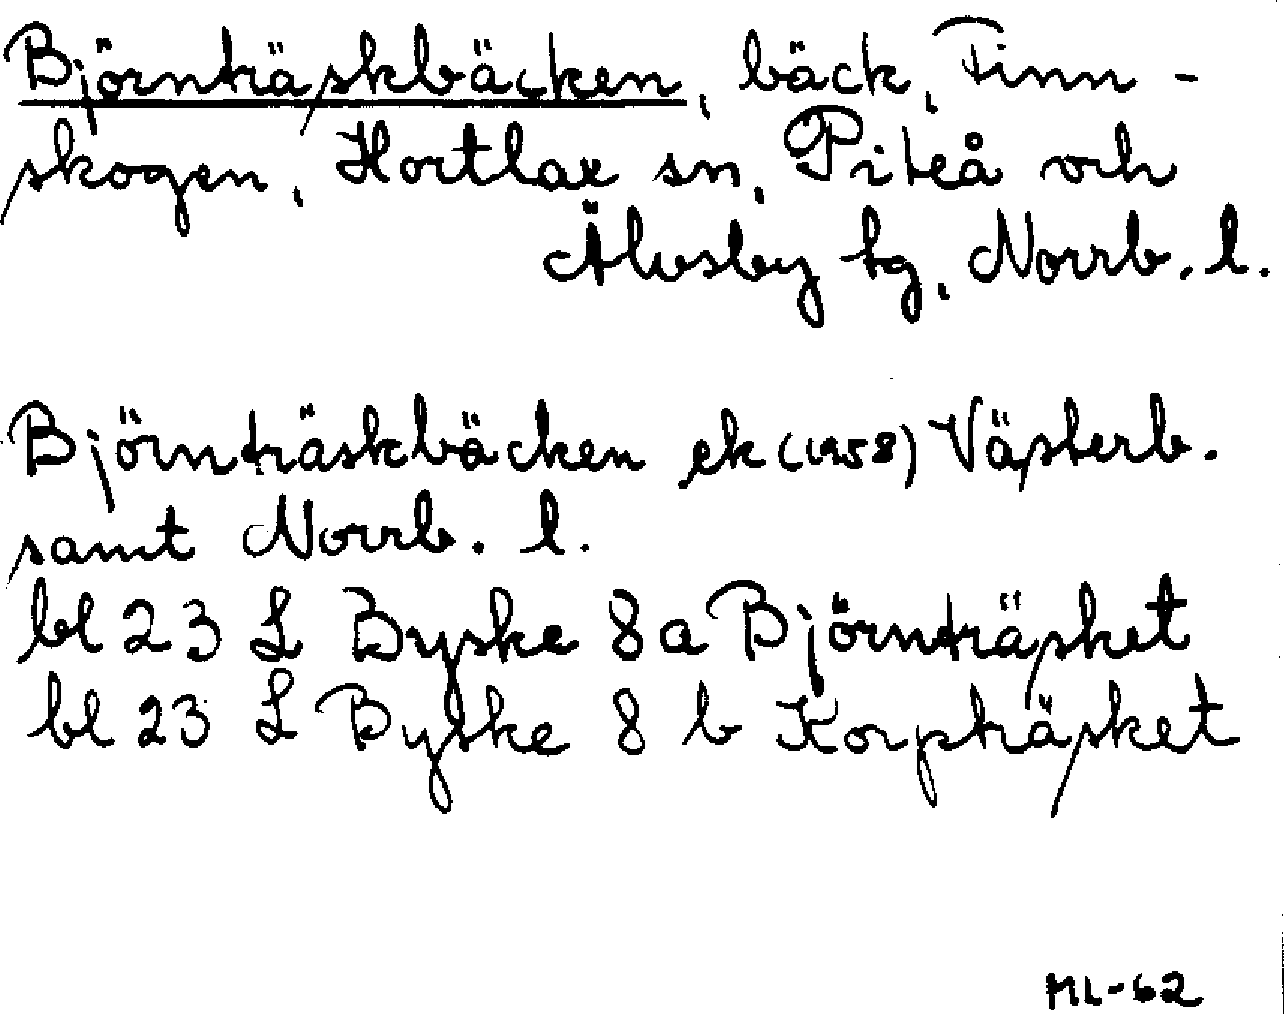 Björnträskbäcken, bäck, Finn-
skogen, Hortlax sn, Piteå och
Älvsby tg, Norrb. l.
Björnträskbäcken ek (1958) Västerb.
samt Norrb. l.
bl 23 L Byske 8 a Björnträsket
bl 23 L Byske 8 b Korpträsket
ML-62